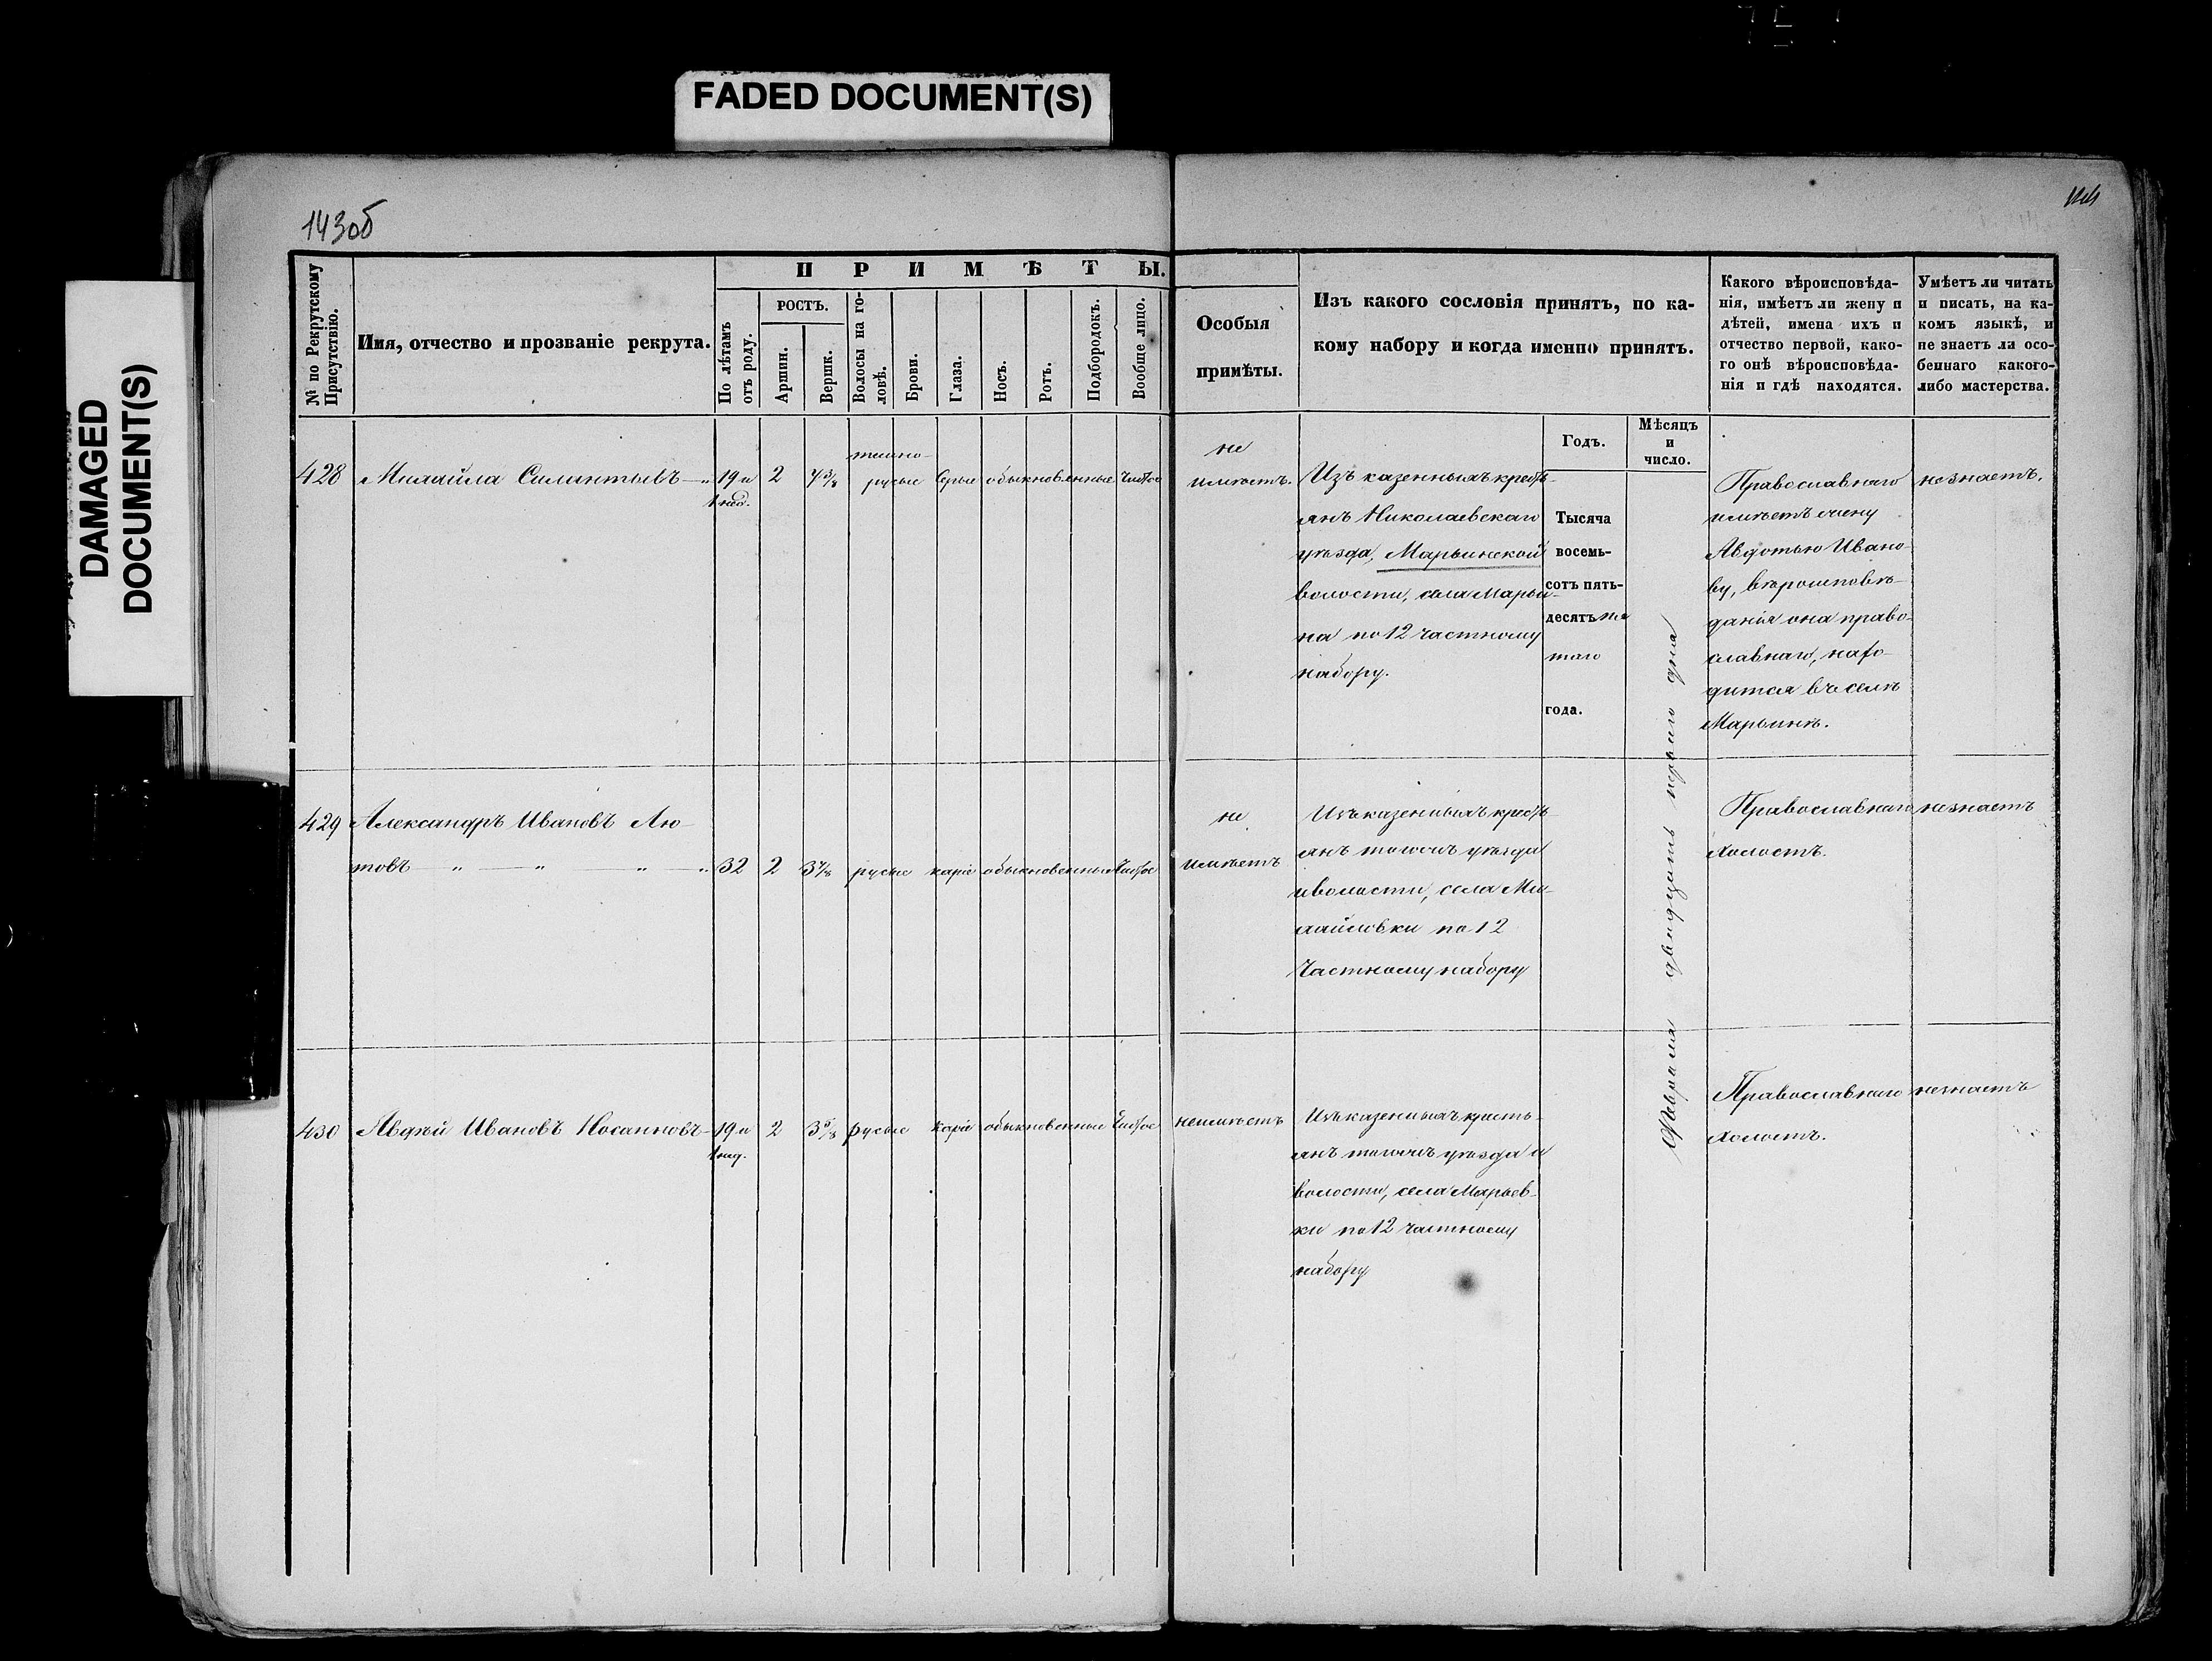 FADED DOCUMENT(S)
DAMAGED
DOCUMENT(S)
143об
144
№ по Рекрутскому
Присутствію.
Имя, отчество и прозваніе рекрута.
ПРИМѢТЫ.
По лѣтамъ
отъ роду.
РОСТЪ.
Аршин.
Вершк.
Волосы на го-
ловѣ.
Брови.
Глаза.
Носъ.
Ротъ.
Подбородокъ.
Вообще лицо.
Особыя
примѣты.
Изъ какого сословія принятъ, по ка-
кому набору и когда именно принятъ.
Какого вѣроисповѣда-
нія, имѣетъ ли жену и
дѣтей, имена ихъ и
отчество первой, како-
го онѣ вѣроисповѣда-
нія и гдѣ находятся.
Умѣетъ ли читать
и писать, на ка-
комъ языкѣ, и
не знаетъ ли осо-
беннаго какого-
либо мастерства.
Годъ.
Мѣсяцъ
и
число.
428 Михайла Силинтьивъ 19 и 2 4 3/8 темно-
русые серые обыкновенные чистое
не
имѣетъ.
Изъ казенныхъ кресть-
янъ Николаевскаго
уѣзда, Марьинской
волости, села Марьи-
на по 12 частному
набору.
Тысяча
восемь-
сотъ пять-
десятъ пя
таго
года.
Февраля двадцать перваго дня
Православнаго
имѣетъ жену
Авдотью Ивано-
ву, вѣроисповѣ-
данія она право-
славнаго, нахо-
дится въ селѣ
Марьинѣ.
не знаетъ.
429 Александръ Ивановъ Лю-
товъ 32 2 3 7/8 русые каріе обыкновенные чистое
не
имѣетъ
Изъ казенныхъ кресть-
янъ тогожъ уѣзда
и волости, села Ми-
хайловки по 12
частному набору
Православнаго
холостъ.
не знаетъ
430 Авдѣй Ивановъ 19 и 2 3 5/8 русые каріе обыкновенные чистое
не имѣетъ
Изъ казенныхъ кресть-
янъ тогожъ уѣзда и
волости, села Марьев-
ки по 12 частному
набору
Православнаго
холостъ.
не знаетъ